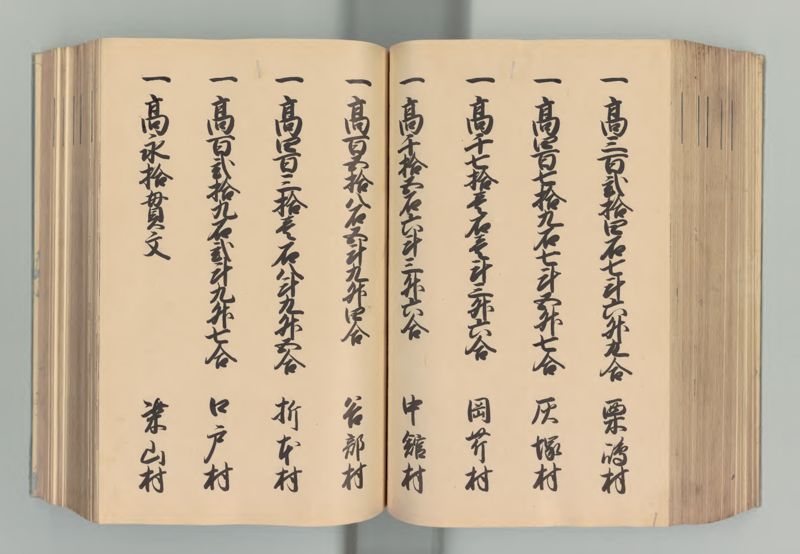 一高三百弐拾四石七斗六升九合 栗嶋村
一高四百七拾九石七斗五升七合 灰塚村
一高千七拾壱石壱斗三升六合 岡芹村
一高千拾五石六斗三升六合 中舘村
一高百五拾八石五斗九升四合 谷部村
一高四百三拾壱石八斗九升五合 折本村
一高百弐拾九石弐斗九升七合 口戸村
一高永拾貫文 葉山村